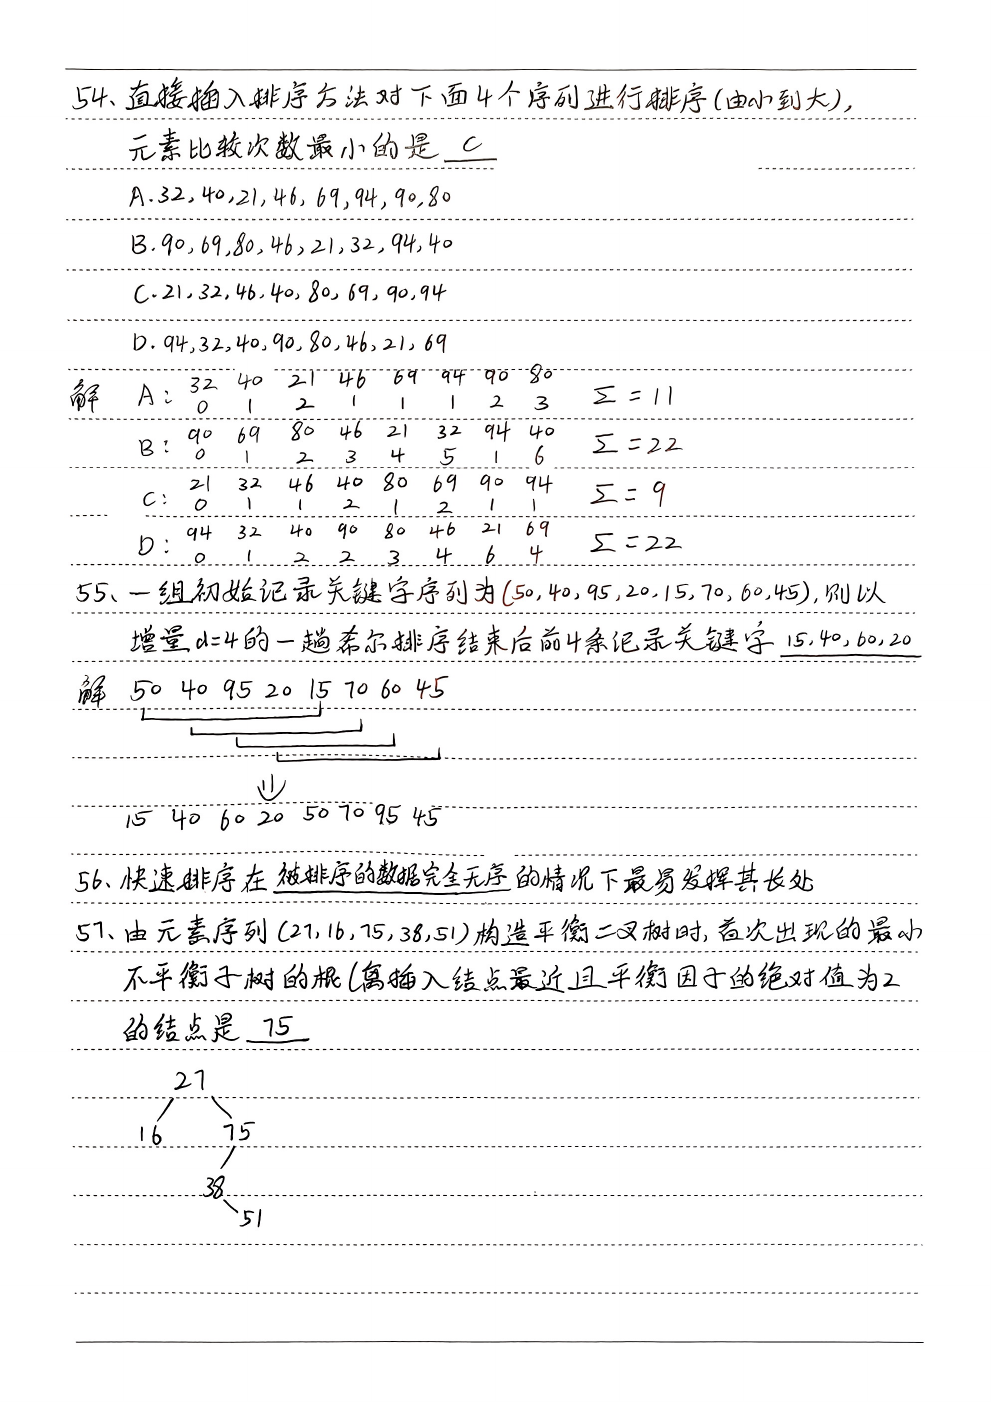 54、直接插入排序方法对下面4个序列进行排序(由小到大),
元素比较次数最小的是 C
A.32,40,21,46,69,94,90,80
B.90,69,80,46,21,32,94,40
C.21,32,46,40,80,69,90,94
D.94,32,40,90,80,46,21,69
解 A: 32 40 21 46 69 94 90 80
0 1 2 1 1 1 2 3 Σ=11
B: 90 69 80 46 21 32 94 40
0 1 2 3 4 5 1 6 Σ=22
C: 21 32 46 40 80 69 90 94
0 1 1 2 1 2 1 1 Σ=9
D: 94 32 40 90 80 46 21 69
0 1 2 2 3 4 6 4 Σ=22
55、一组初始记录关键字序列为(50,40,95,20,15,70,60,45),则以
增量d=4的一趟希尔排序结束后前4条记录关键字 15,40,60,20
解 50 40 95 20 15 70 60 45
15 40 60 20 50 70 95 45
56、快速排序在 被排序的数据完全无序 的情况下最易发挥其长处
57、由元素序列(27,16,75,38,51)构造平衡二叉树时,首次出现的最小
不平衡子树的根(离插入结点最近且平衡因子的绝对值为2
的结点是 75
27
16 75
38
51